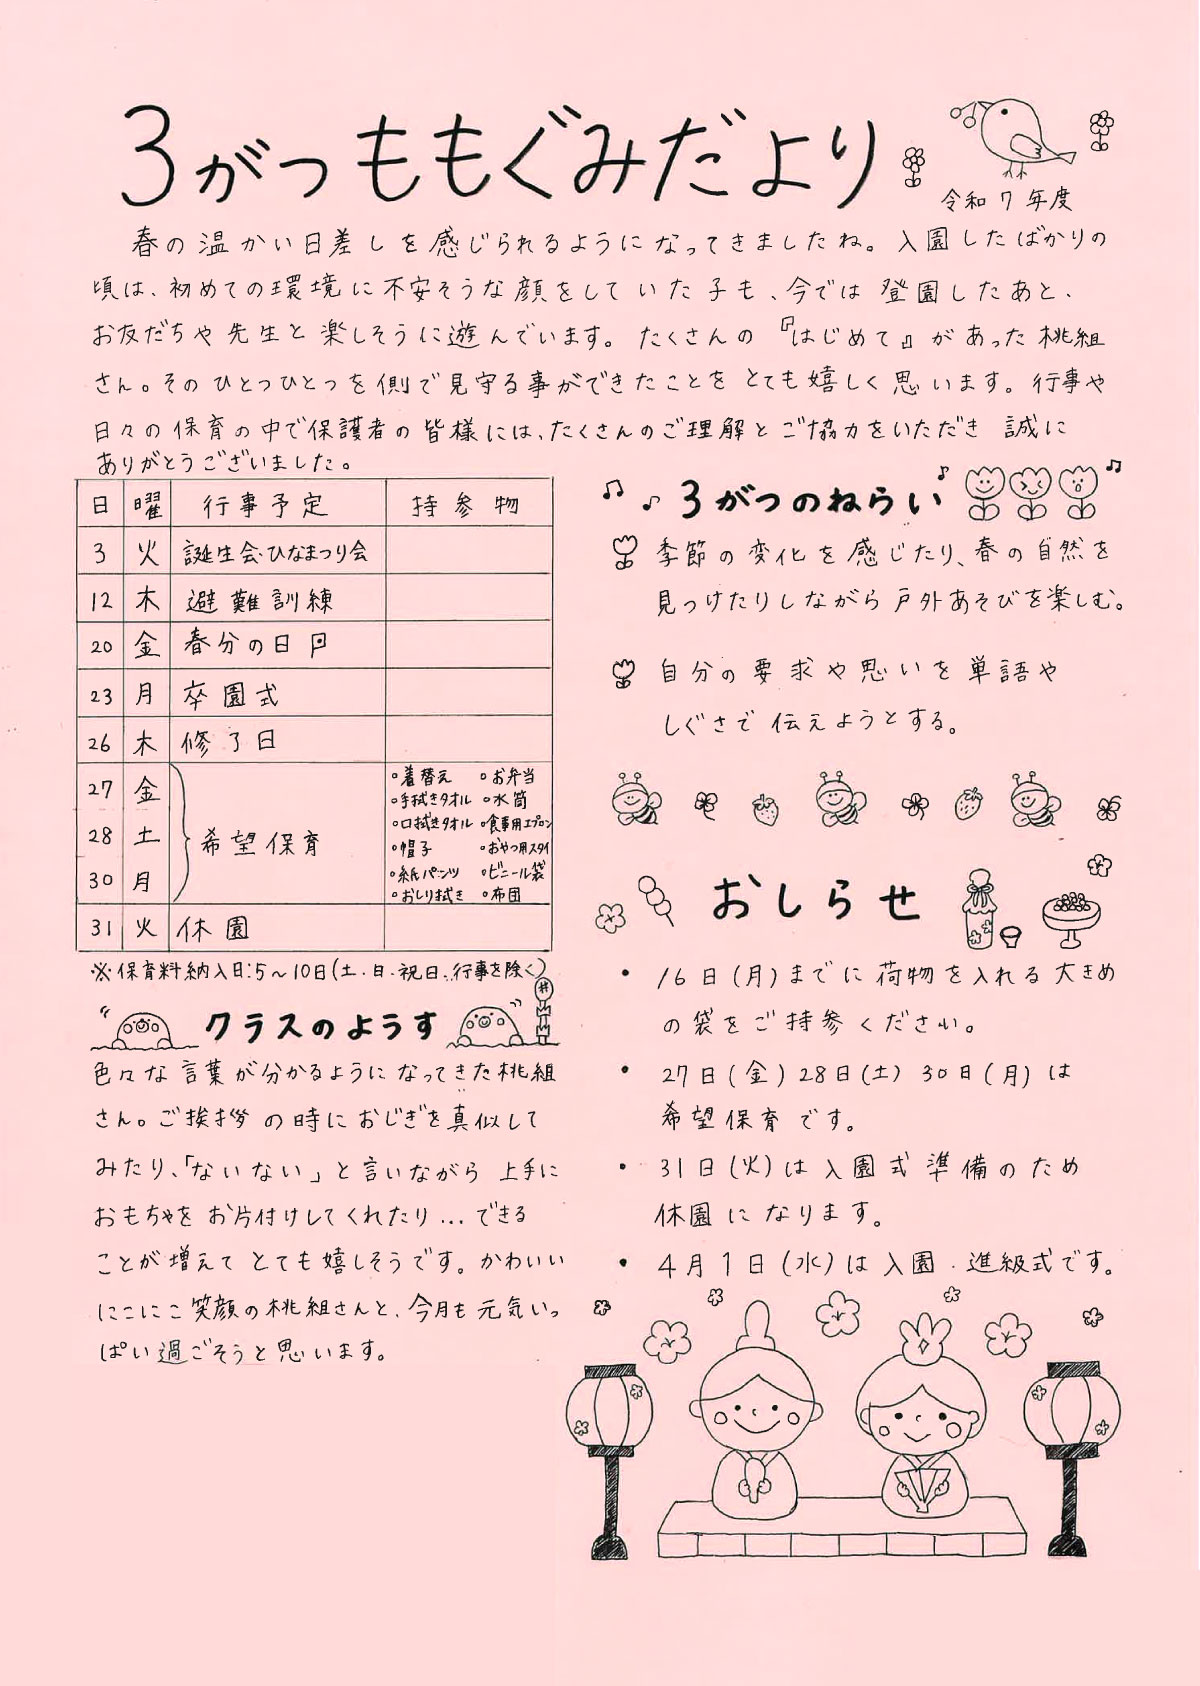 3がつももぐみだより
令和7年度
春の温かい日差しを感じられるようになってきましたね。入園したばかりの
頃は、初めての環境に不安そうな顔をしていた子も、今では登園したあと、
お友だちや先生と楽しそうに遊んでいます。たくさんの『はじめて』があった桃組
さん。そのひとつひとつを側で見守る事ができたことをとても嬉しく思います。行事や
日々の保育の中で保護者の皆様には、たくさんのご理解とご協力をいただき 誠に
ありがとうございました。
日 曜 行事予定 持参物
3 火 誕生会・ひなまつり会
12 木 避難訓練
20 金 春分の日
23 月 卒園式
26 木 修了日
27 金
28 土
30 月
希望保育
・着替え ・お弁当
・手拭きタオル ・水筒
・口拭きタオル ・食事用エプロン
・帽子 ・おやつ用スタイ
・紙パンツ ・ビニール袋
・おしり拭き ・布団
31 火 休園
※保育料納入日:5〜10日(土・日・祝日・行事を除く)
クラスのようす
色々な言葉が分かるようになってきた桃組
さん。ご挨拶の時におじぎを真似して
みたり、「ないない」と言いながら上手に
おもちゃをお片付けしてくれたり…できる
ことが増えてとても嬉しそうです。かわいい
にこにこ笑顔の桃組さんと、今月も元気いっ
ぱい過ごそうと思います。
3がつのねらい
季節の変化を感じたり、春の自然を
見つけたりしながら戸外あそびを楽しむ。
自分の要求や思いを単語や
しぐさで伝えようとする。
おしらせ
・16日(月)までに荷物を入れる大きめ
の袋をご持参ください。
・27日(金)28日(土)30日(月)は
希望保育です。
・31日(火)は入園式準備のため
休園になります。
・4月1日(水)は入園・進級式です。